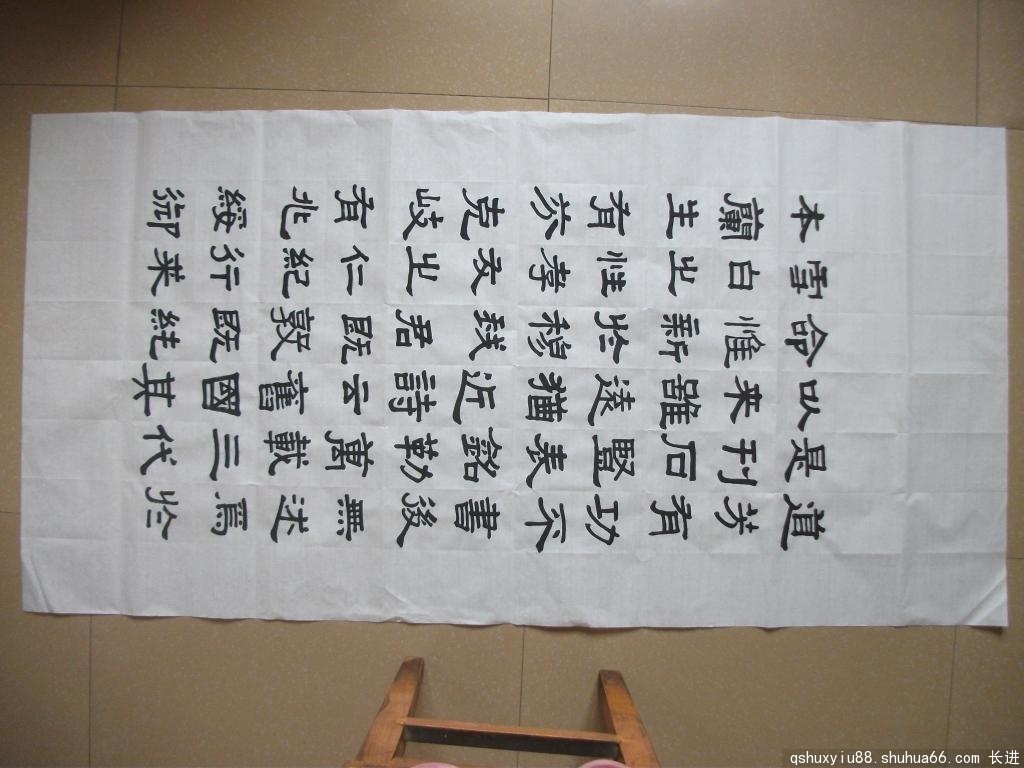 道芳有功不書後無述焉於
是刊石豎表銘勒萬載三代
以来雖遠猶近詩云舊國其
命惟新於穆我君既敦既純
雪白之性孝友之仁紀行来
本蘭生有芬克岐有兆綏御
qshuxyiu88.shuhua66.com 长进